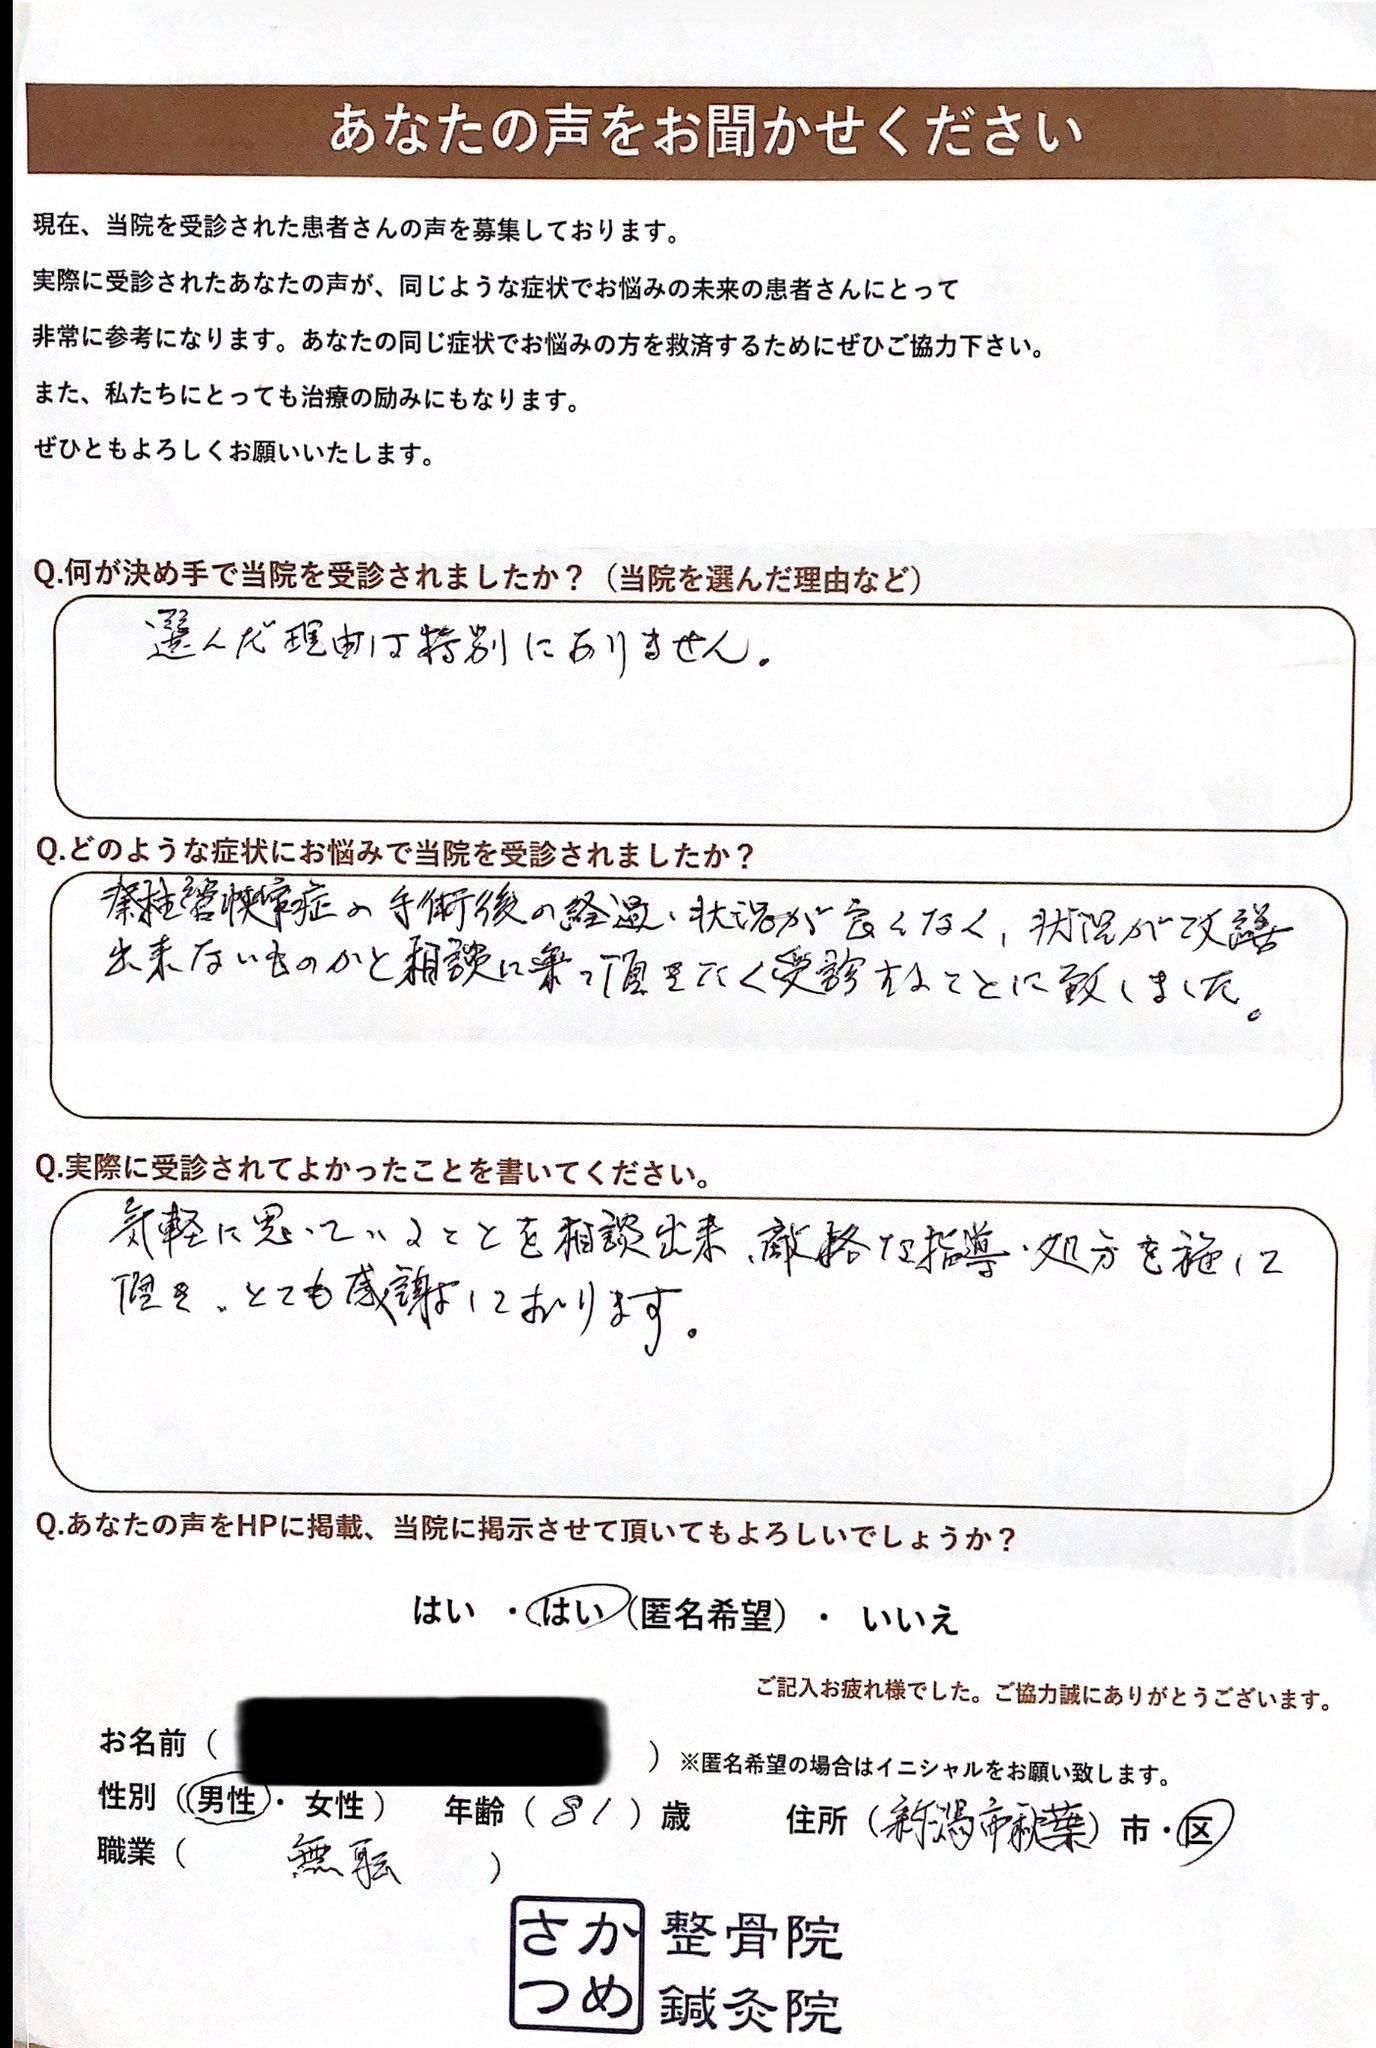 あなたの声をお聞かせください
現在、当院を受診された患者さんの声を募集しております。
実際に受診されたあなたの声が、同じような症状でお悩みの未来の患者さんにとって
非常に参考になります。あなたの同じ症状でお悩みの方を救済するためにぜひご協力下さい。
また、私たちにとっても治療の励みにもなります。
ぜひともよろしくお願いいたします。
Q.何が決め手で当院を受診されましたか？（当院を選んだ理由など）
選んだ理由は特別にありません。
Q.どのような症状にお悩みで当院を受診されましたか？
の手術後の経過・状況が良くなく、状況が改善
出来ないものかと相談に乗って頂きたく受診することに致しました。
Q.実際に受診されてよかったことを書いてください。
気軽に思っていることを相談出来、厳格な指導・処方を施して
頂き、とても感謝しております。
Q.あなたの声をHPに掲載、当院に掲示させて頂いてもよろしいでしょうか？
はい ・ はい（匿名希望）・ いいえ
ご記入お疲れ様でした。ご協力誠にありがとうございます。
お名前（ ）※匿名希望の場合はイニシャルをお願い致します。
性別（男性・女性） 年齢（81）歳 住所（新潟市秋葉）市・区
職業（無職）
さか 整骨院
つめ 鍼灸院